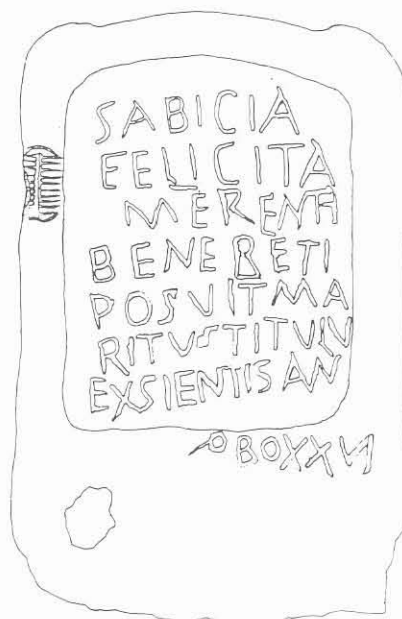 SABICIA
FELICITA
MERENTI
BENEBETI
POSVITMA
RITVSTITVLV
EXSIENTISAN
OBOXXVI